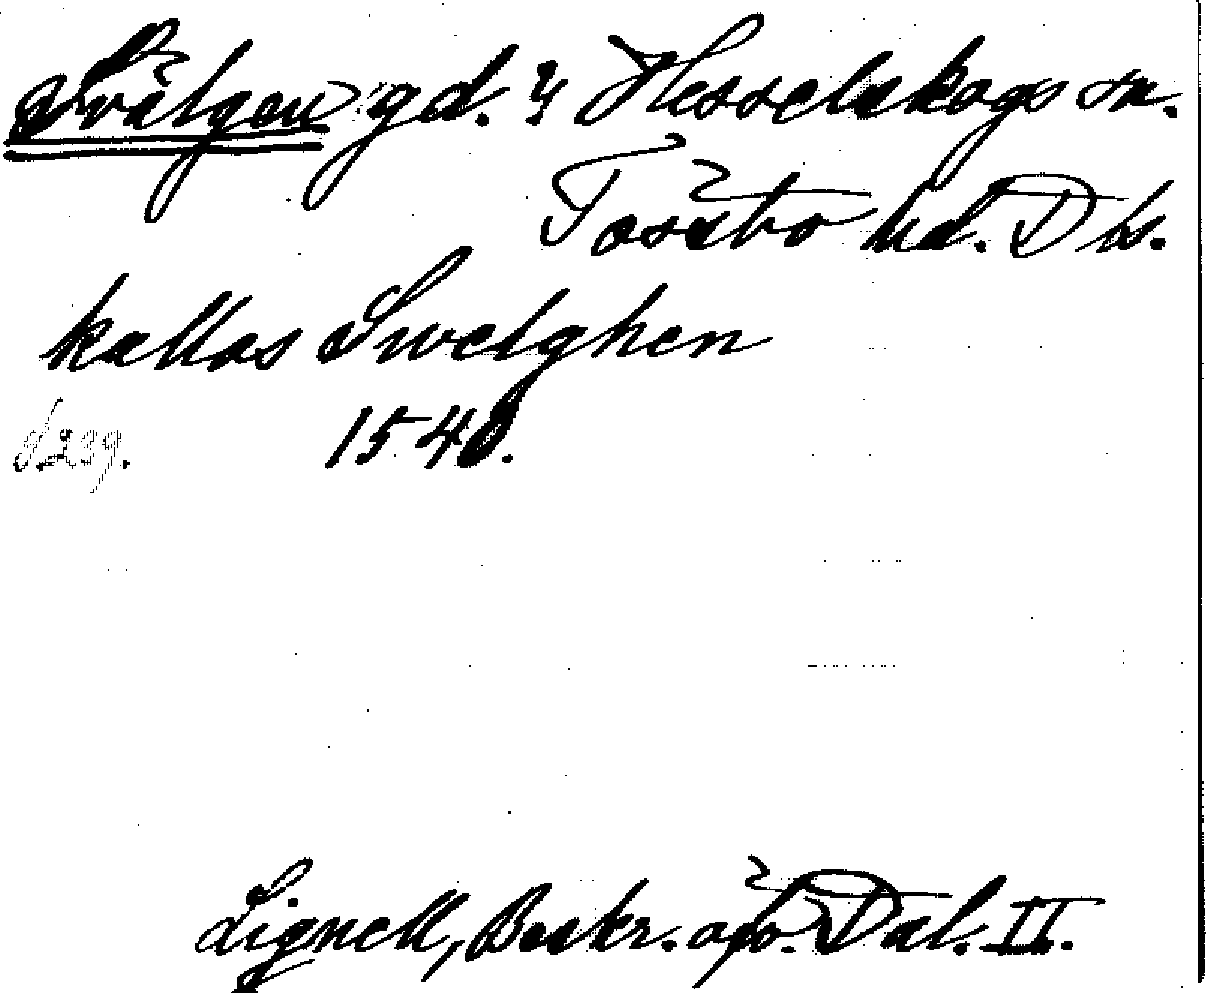 Svälgen gd. i Hesselskogs sn.
Tössbo hd. Dls.
kallas Swelghen
1540.
s. 239.
Lignell, Beskr. öfv. Dal. II.